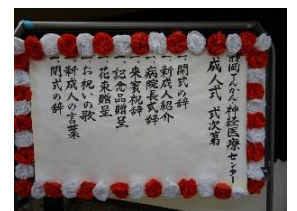 静岡てんかん・神経医療センター
成人式 式次第
一 開式の辞
一 新成人紹介
一 病院長式辞
一 来賓祝辞
一 記念品贈呈
一 花束贈呈
一 お祝いの歌
一 新成人の言葉
一 閉式の辞